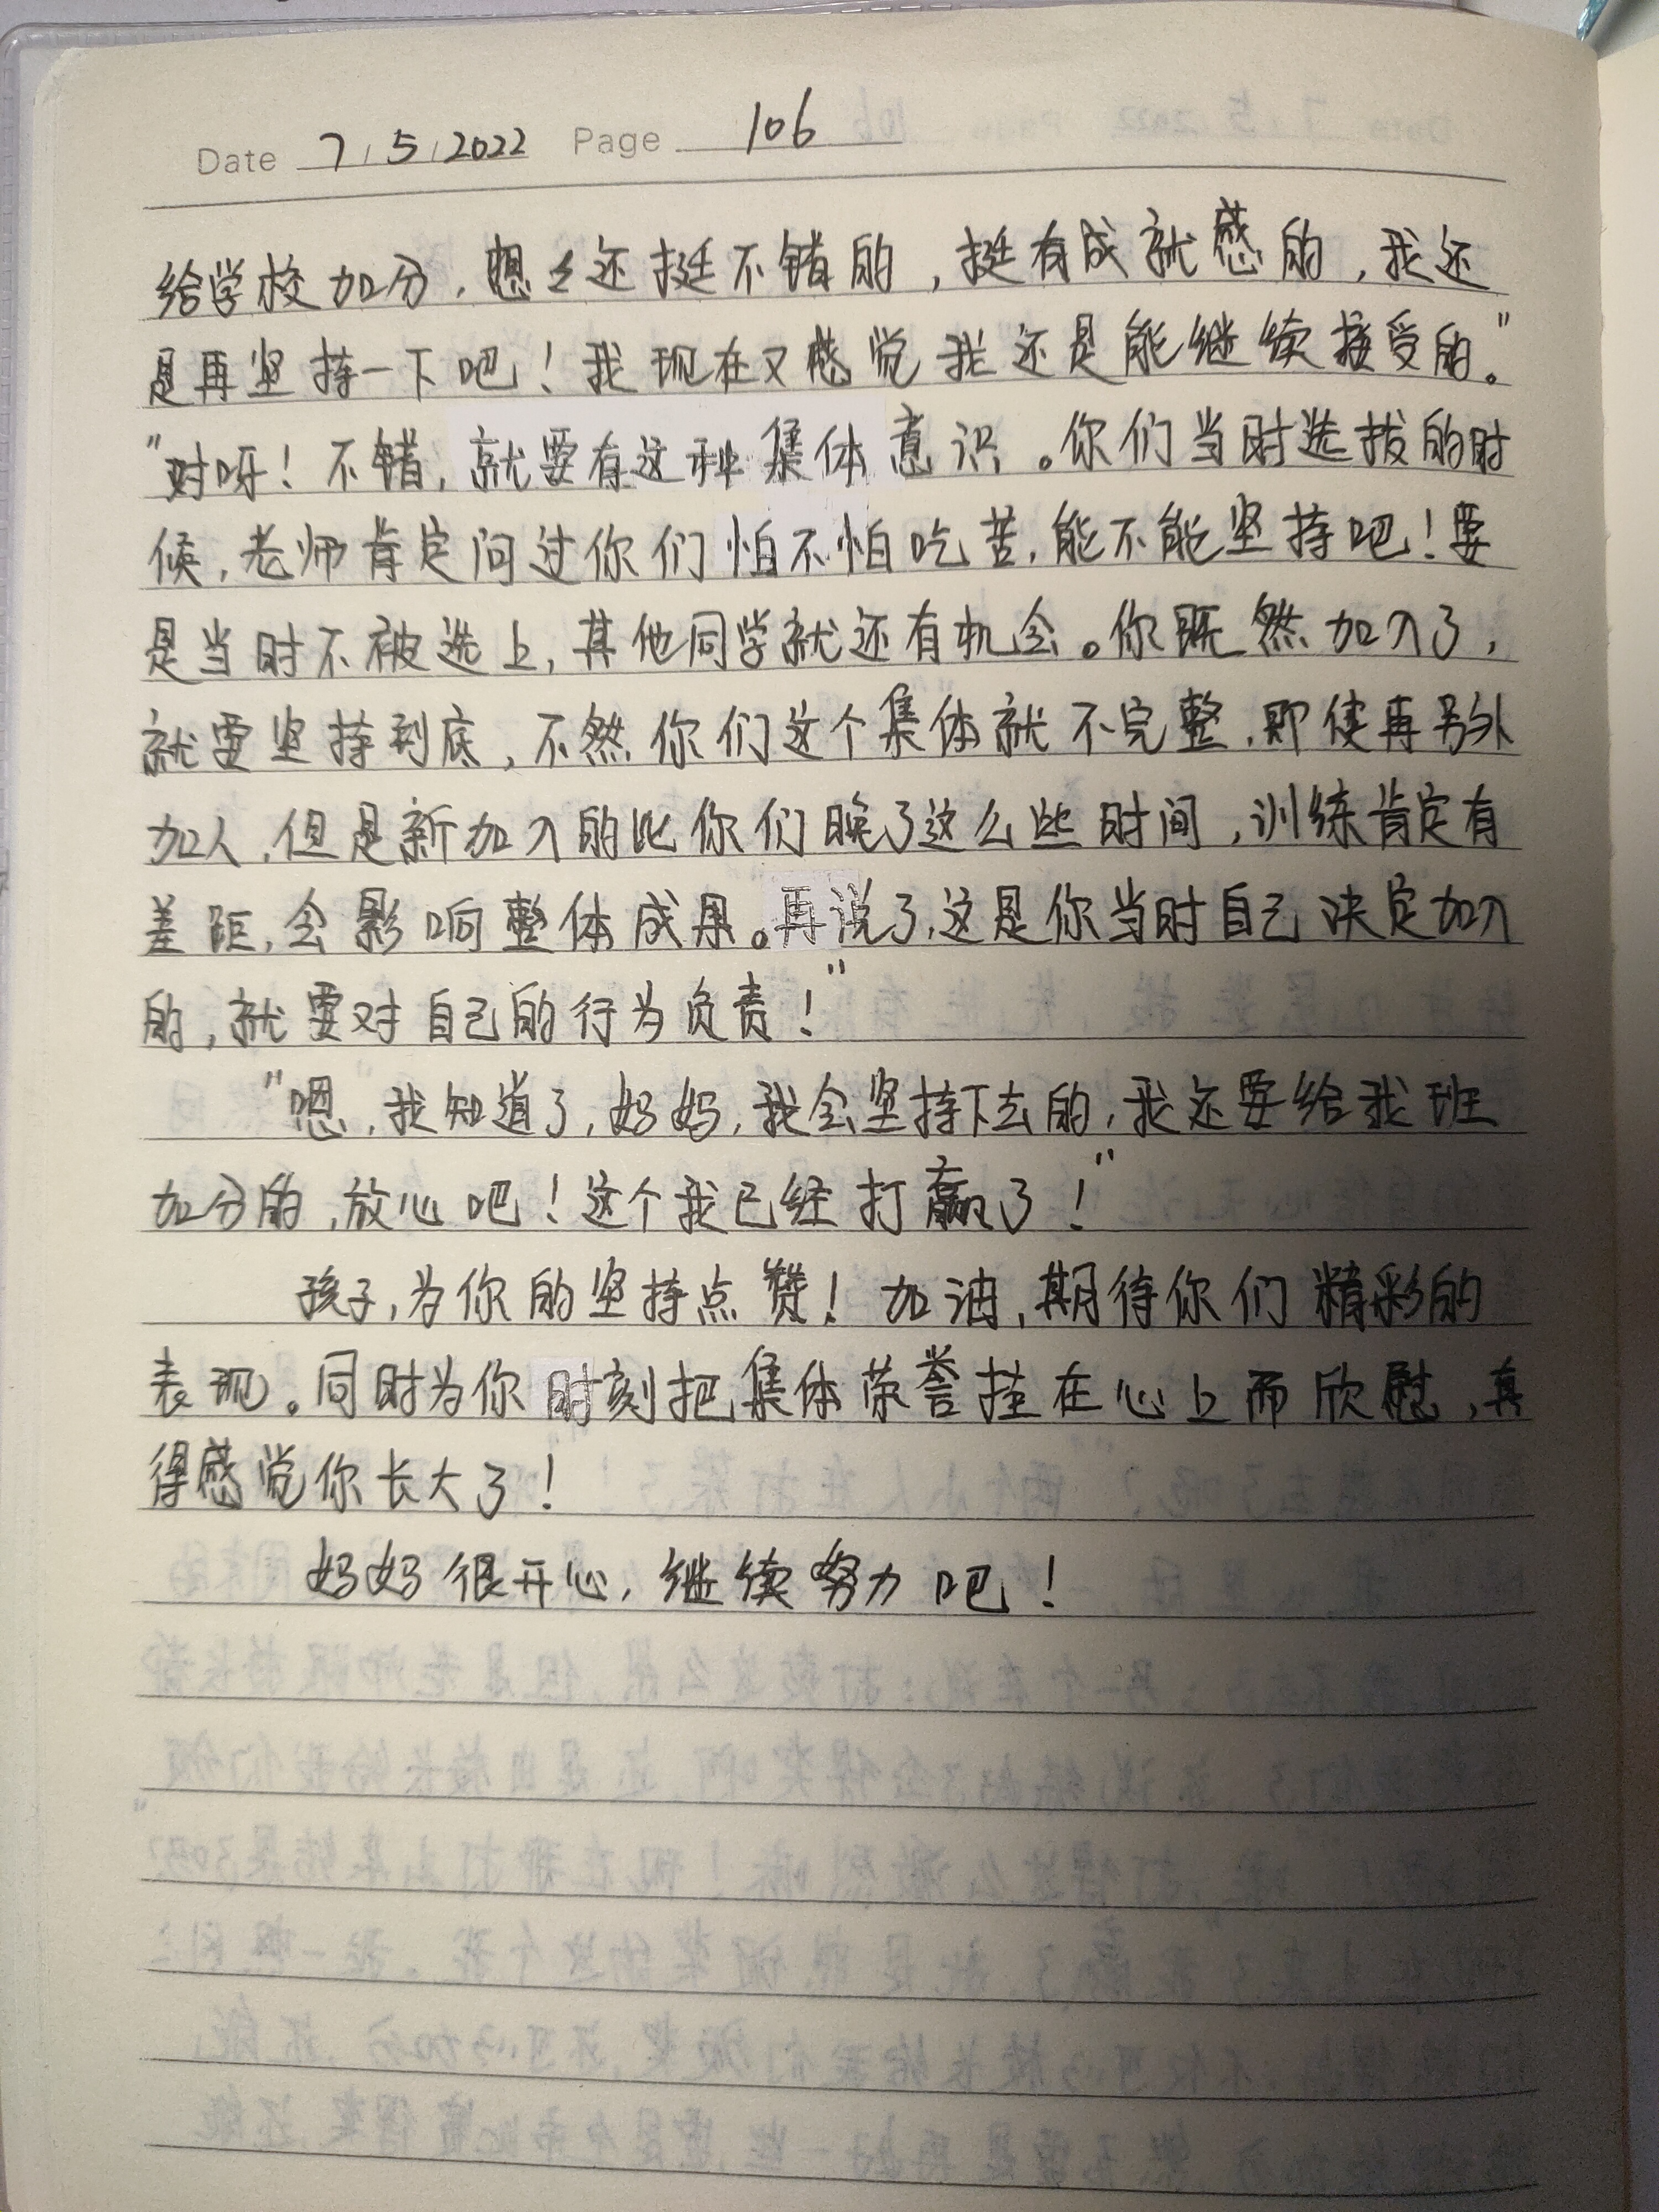 Date 7/5/2022 Page 106
给学校加分，想々还挺不错的，挺有成就感的，我还
是再坚持一下吧！我现在又感觉我还是能继续接受的。"
"对呀！不错，就要有这种集体意识。你们当时选拔的时
候，老师肯定问过你们怕不怕吃苦，能不能坚持吧！要
是当时不被选上，其他同学就还有机会。你既然加入了，
就要坚持到底，不然你们这个集体就不完整，即使再另外
加人，但是新加入的比你们晚了这么些时间，训练肯定有
差距，会影响整体成果。再说了，这是你当时自己决定加入
的，就要对自己的行为负责！"
"嗯，我知道了，妈妈，我会坚持下去的，我还要给我班
加分的，放心吧！这个我已经打赢了！"
孩子，为你的坚持点赞！加油，期待你们精彩的
表现。同时为你时刻把集体荣誉挂在心上而欣慰，真
得感觉你长大了！
妈妈很开心，继续努力吧！